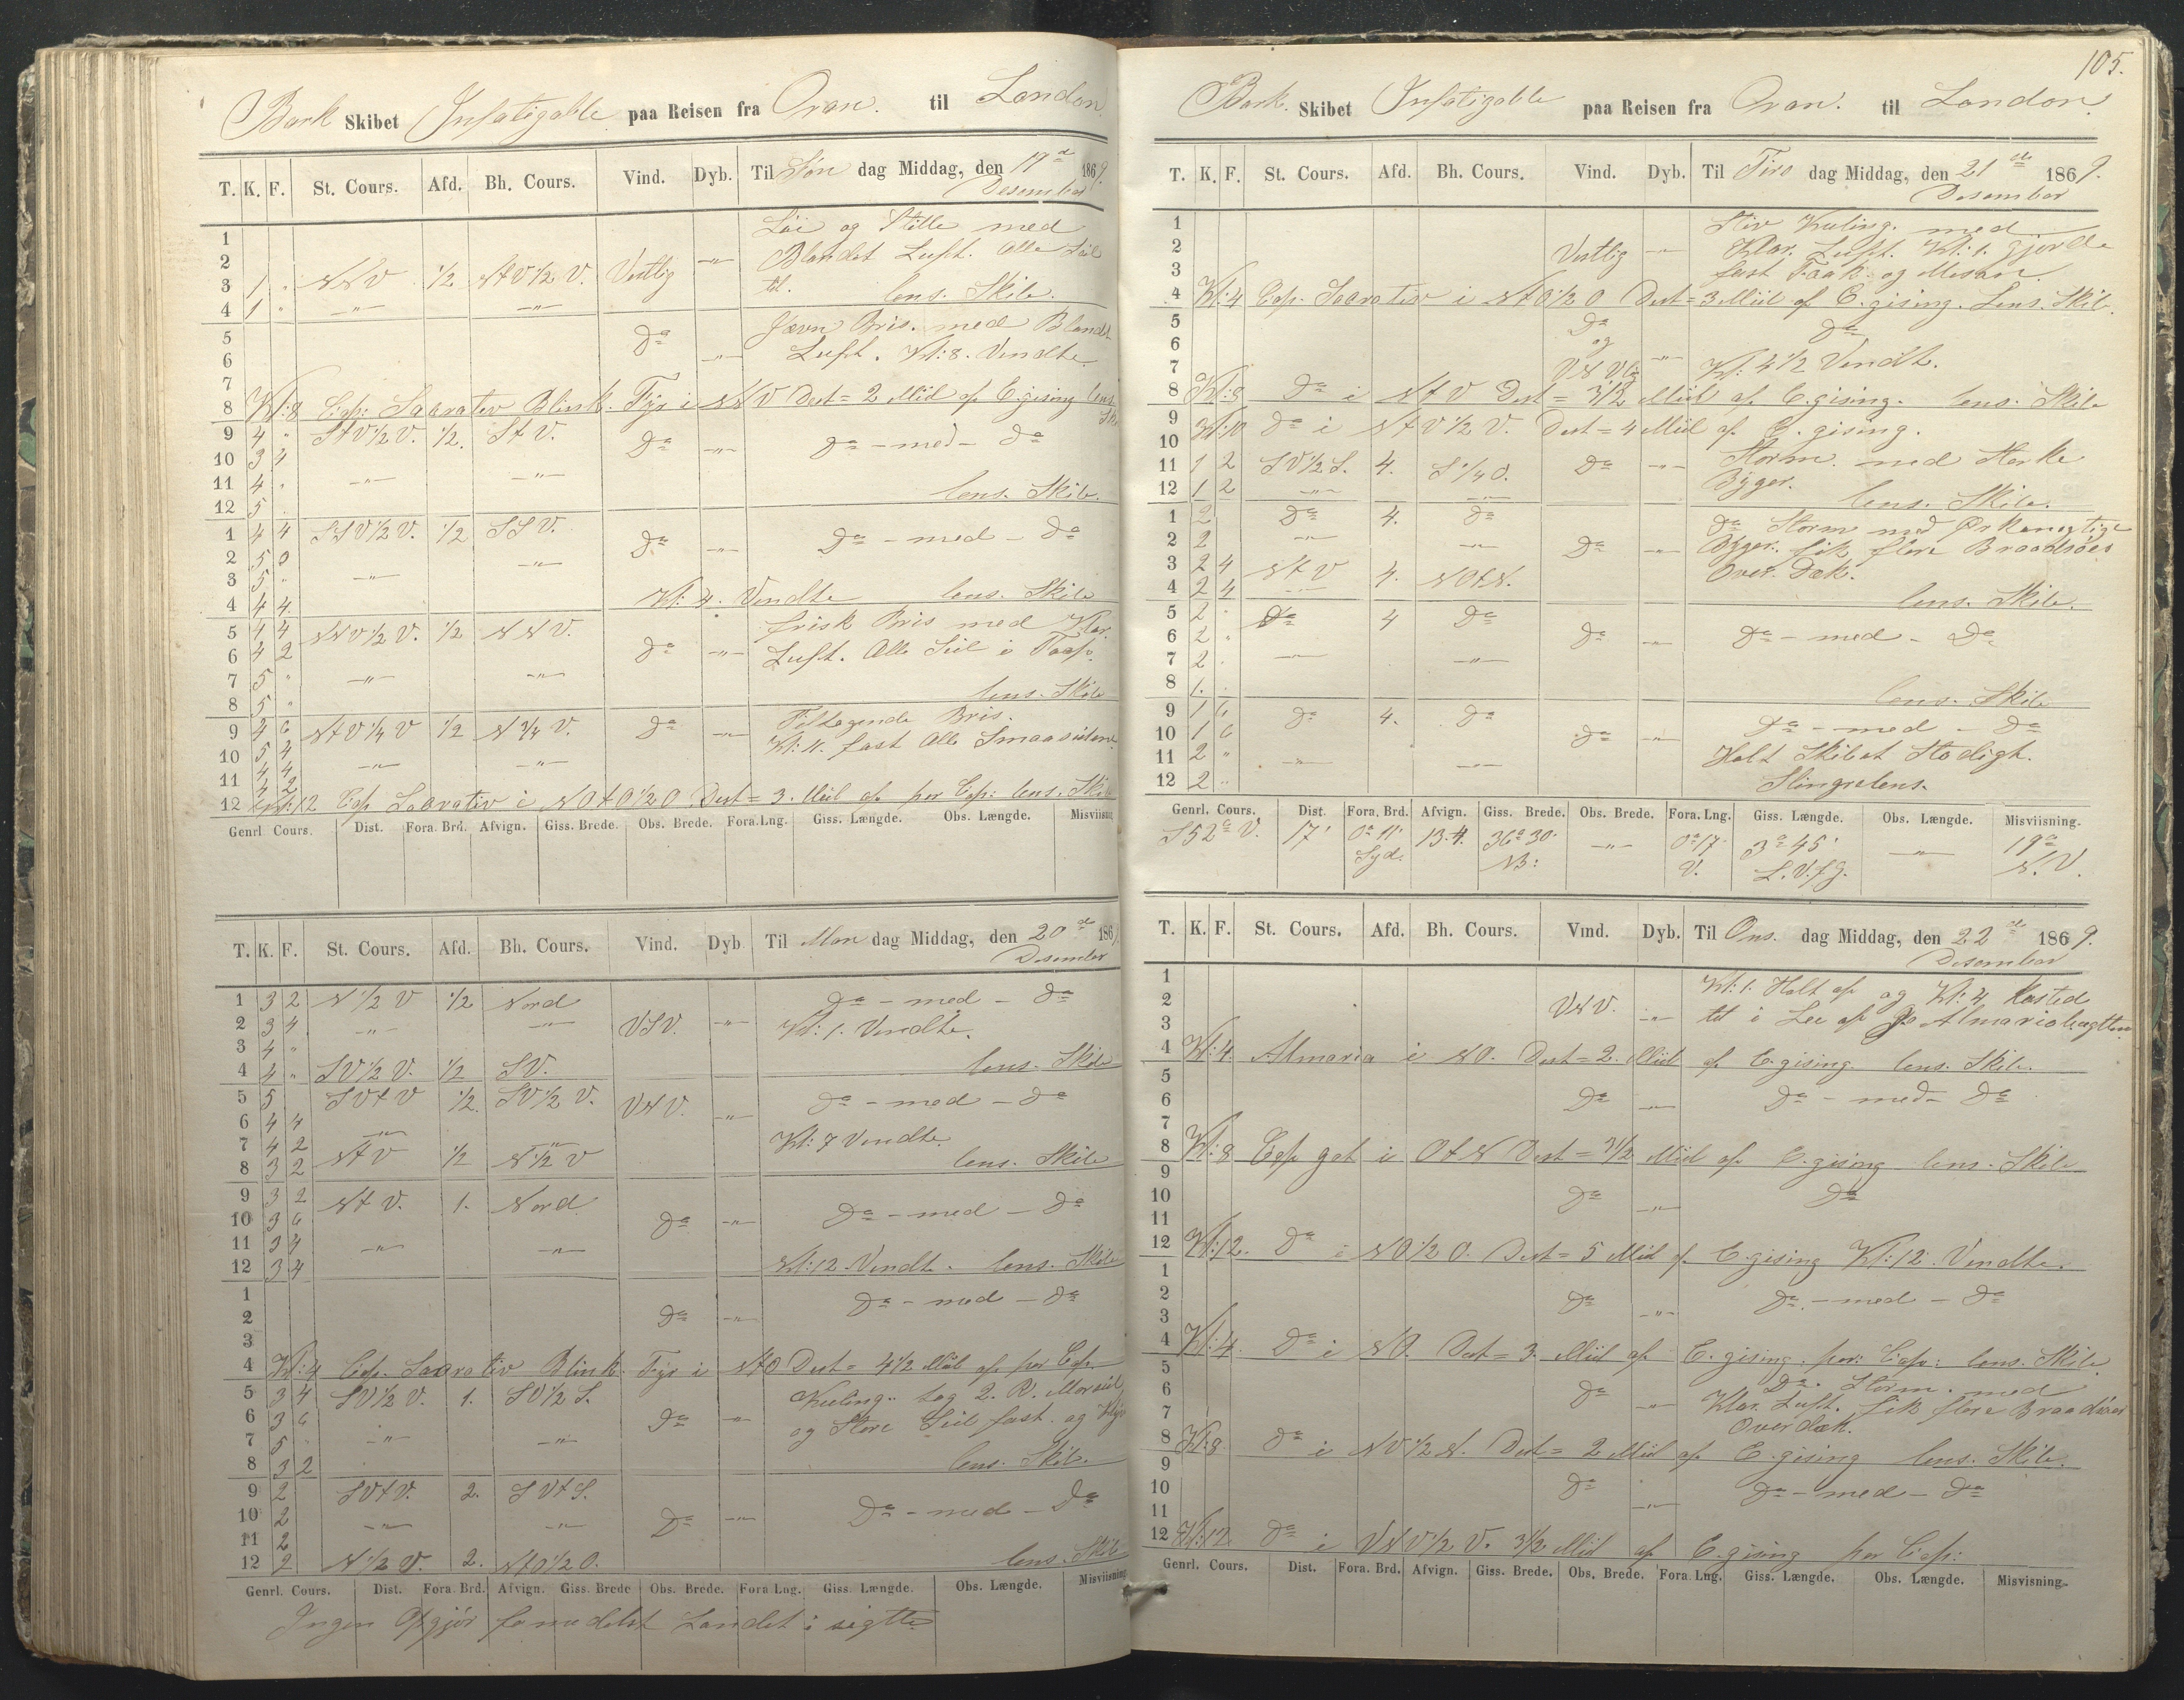 Bark Skibet Infatigable paa Reisen fra Oran. til London
T. K. F. St. Cours. Afd. Bh. Cours. Vind. Dyb. Til Søn dag Middag, den 19de 1869.
Desember
1 Løi og Stille med
2 Blandet Luft. Alle Seil
3 1 " NNV 1/2 NtV 1/2 V. Vestlig -"- til.
4 1 " -"- -"- lens. Skib.
5 Jævn Bris. med Blandt
6 Da -"- Luft. Kl: 8. Vendte
7
8 Kl: 8 Cap: Sabrativ Blink. Fyr i NNV Dist = 2 Miil af C.gising lens Skib
9 4 " StV 1/2 V. 1/2. St V. Da -"- Da - med - Da
10 3 4
11 4 " -"- -"-
12 5 lens. Skib.
1 4 4 SSV 1/2 V. 1/2 SSV.
2 5 0 Da -"- Da - med - Da
3 5 " -"- -"-
4 4 4 Kl: 4. Vendte lens. Skib
5 4 4 NNV 1/2 V. 1/2 NNV. frisk Bris med Klar.
6 4 2 Da -"- Luft. Alle Seil i Top.
7 5 " -"- -"-
8 5 " lens. Skib
9 4 6 NtV 1/4 V 1/2 N 3/4 V. Da -"- Tiltagende Bris.
10 5 4 fast Alle Smaaseilene
11 4 4 -"- -"-
12 Kl: 12 Cap Sabrativ i NOtO 1/2 O. Dist = 3. Miil af per Cap: lens. Skib
Genrl. Cours. Dist. Fora. Brd. Afvign. Giss. Brede. Obs. Brede. Fora. Lng. Giss. Længde. Obs. Længde. Misviisning
T. K. F. St. Cours. Afd. Bh. Cours. Vind. Dyb. Til Man dag Middag, den 20de 1869
Desember
1 3 2 N 1/2 V 1/2 Nord Da - med - Da
2 3 4 -"- -"- VSV. -"- Kl: 1. Vendte.
3 4 "
4 4 " SV 1/2 V. 1/2 SV. lens. Skib
5 5 SVtV 1/2. SV 1/2 V. VNV. -"- Da - med - Da
6 4 4
7 4 2 -"- -"- Kl: 7 Vendte
8 3 2 NtV 1/2 N 1/2 V lens. Skib
9 3 2 NtV. 1. Nord
10 3 6 Da -"- Da - med - Da
11 3 4 -"- -"-
12 3 4 Kl: 12. Vendte. lens. Skib
1 Da - med - Da
2 Da -"-
3
4 Kl: 4 Cap. Sabrativ Blink. Fyr i NtO Dist = 4 1/2 Miil af per Cap.
5 3 4 SV 1/2 V. 1. SV 1/2 S. Kuling. tog 2. R. Mersseil
6 3 6 Da -"- og Store Seil fast. og Klyv
7 5 -"- -"-
8 3 2 lens. Skib.
9 2 SVtV. 2. SVtS.
10 2 Da -"- Da - med - Da
11 2 -"- -"-
12 2 N 1/2 V. 2. NtO 1/2 O. lens. Skib
Genrl. Cours. Dist. Fora. Brd. Afvign. Giss. Brede Obs. Brede. Fora Lng. Giss. Længde. Obs. Længde. Misviisning
Ingen Opgjør formedelst Landet i sigtte
105.
Bark. Skibet Infatigable paa Reisen fra Oran. til London.
T. K. F. St. Cours. Afd. Bh. Cours. Vind. Dyb. Til Tirs dag Middag, den 21de 1869.
Desember
1 Stiv Kuling. med
2 Vestlig -"- Klar. Luft. Kl: 1. gjorde
3 fast Fook. og Mesan.
4 Kl: 4 Cap. Sabrativ i NtO 1/2 O Dist = 3 Miil af C.gising. Lens. Skib.
5 Da Da
6 og
7 VNVlig -"- Kl: 4 1/2 Vendt.
8 Kl: 8 Da i NtV Dist = 3 1/2 Miil af C.gising. lens. Skib
9 Kl: 10 Da i NtV 1/2 V. Dist = 4 Miil af C. gising.
10
11 1 2 SV 1/2 S. 4. S 1/4 O. Da -"- Storm. med Sterke
12 1 2 -"- -"- Byger. lens. Skib.
1 2 Da 4. Da Da Storm med Orkanagtige
2 2 -"- -"- Da -"- Byger. fik flere Braadsøes
3 2 4 NtV 4. NOtN. Over Dæk.
4 2 4 -"- lens. Skib.
5 2 " Da 4 Da
6 2 " Da -"- Da - med - Da
7 2 " -"- -"-
8 1. . lens. Skib
9 1 6 Da 4. Da Da - med - Da
10 1 6 Da -"-
11 2 " -"- -"- Holt Skibet Stadigt.
12 2 " Slingrelens.
Genrl. Cours. Dist. Fora. Brd. Afvign. Giss. Brede. Obs. Brede. Fora. Lng. Giss. Længde. Obs. Længde. Misviisning.
S 52° V. 17' 0° 11' 13.4. 36° 30' -"- 0° 17' 3° 45' -"- 19°
Syd. NB: V. L.V.f.G. N.V.
T. K. F. St. Cours. Afd. Bh. Cours. Vind. Dyb. Til Ons. dag Middag, den 22de 1869.
Desember
1 Kl: 1. Holt af og Kl: 4 kasted
2 VNV. -"- til i Lee af Almariabugtten
3
4 Kl: 4. Almaria i NO. Dist = 2. Miil af C.gising. lens. Skib.
5
6 Da -"- Da - med - Da
7
8 Kl: 8 Cap gat i OtN Dist = 3 1/2 Miil af C.gising lens. Skib
9
10 Da -"- Da
11
12 Kl: 12. Da i NO 1/2 O. Dist = 5 Miil af C.gising Kl: 12. Vendte.
1
2 Da -"- Da. - med - Da
3
4 Kl: 4. Da i NO. Dist = 3. Miil af C.gising. per: Cap: lens. Skib
5 Da. Storm. med
6 Da -"- Klar. Luft. fik flere Braadsøer
7 Over dæk.
8 Kl: 8 Da i NV 1/2 N. Dist = 2 Miil af C.gising lens. Skib.
9
10 Da -"- Da - med - Da
11
12 Kl: 12. Da i VNV 1/2 V. 3 1/2 Miil af C.gising per Cap:
Genrl. Cours. Dist. Fora. Brd. Afvign. Giss. Brede. Obs. Brede. Fora. Lng. Giss. Længde. Obs. Længde. Misvisning.